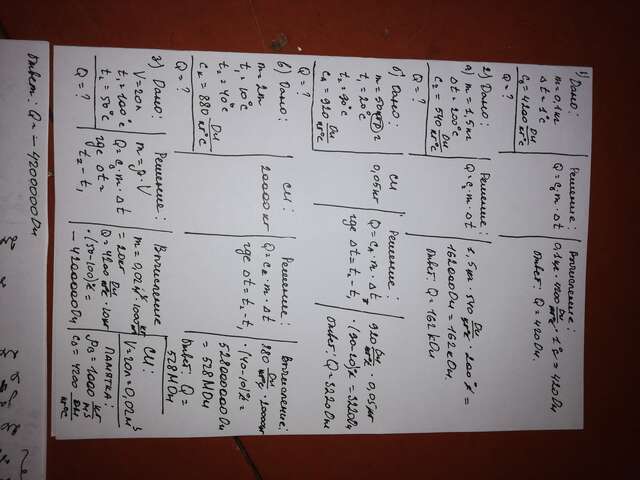 1) Дано:
m = 0,1 кг
Δt = 1°C
c₈ = 4200 Дж/кг°C
Q = ?
Решение:
Q = c₈ · m · Δt
Вычисление:
0,1 кг · 4200 Дж/кг°C · 1°C = 420 Дж
Ответ: Q = 420 Дж.
2) Дано:
а) m = 1,5 кг
Δt = 200°C
c₂ = 540 Дж/кг°C
Q = ?
Решение:
Q = c₂ · m · Δt
1,5 кг · 540 Дж/кг°C · 200°C =
162000 Дж = 162 кДж.
Ответ: Q = 162 кДж
б) Дано:
t₁ = 20°C
t₂ = 90°C
cₐ = 920 Дж/кг°C
Q = ?
СИ:
0,05 кг
Решение:
Q = cₐ · m · Δt
где Δt = t₂ - t₁
920 Дж/кг°C · 0,05 кг
· (90-20)°C = 3220 Дж
Ответ: Q = 3220 Дж
в) Дано:
t₁ = 10°C
t₂ = 40°C
cₖ = 880 Дж/кг°C
Q = ?
СИ:
20000 кг
Решение:
Q = cₖ · m · Δt
где Δt = t₂ - t₁
Вычисление:
880 Дж/кг°C · 20000 кг
· (40-10)°C =
528000000 Дж
= 528 МДж
Ответ: Q =
528 МДж
г) Дано:
V = 20 л
t₁ = 100°C
t₂ = 50°C
Q = ?
Решение:
m = ρ · V
Q = c₈ · m · Δt
где Δt =
t₂ - t₁
Вычисление
= 20 кг
· (50-100)°C =
- 4200000 Дж
СИ:
V = 20 л = 0,02 м³
Памятка:
ρв = 1000 кг/м³
cв = 4200 Дж/кг°C
Ответ: Q = - 4200000 Дж